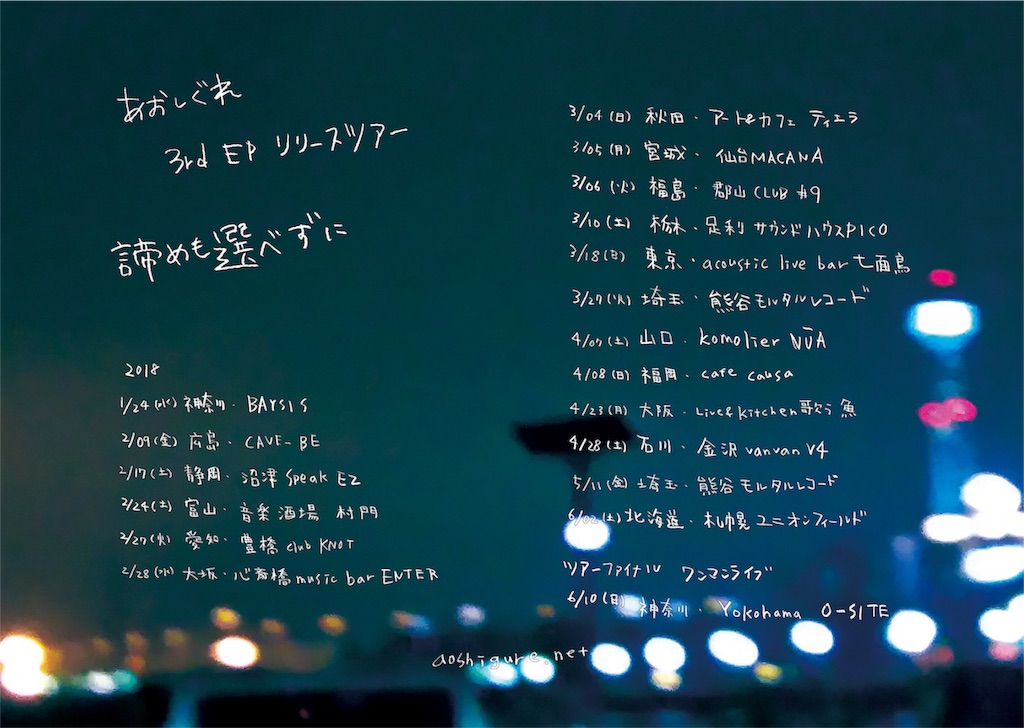 あおしぐれ
3rd EP リリースツアー
諦めも選べずに
2018
1/24(水) 神奈川・BAYSIS
2/09(金) 広島・CAVE-BE
2/17(土) 静岡・沼津 Speak EZ
2/24(土) 富山・音楽酒場 村門
2/27(火) 愛知・豊橋 club KNOT
2/28(水) 大坂・心斎橋 music bar ENTER
3/04(日) 秋田・アート&カフェ ティエラ
3/05(月) 宮城・仙台MACANA
3/06(火) 福島・郡山CLUB #9
3/10(土) 栃木・足利 サウンドハウスPICO
3/18(日) 東京・acoustic live bar 七面鳥
3/27(火) 埼玉・熊谷モルタルレコード
4/07(土) 山口・komolier NŪA
4/08(日) 福岡・cafe causa
4/23(月) 大阪・Live&Kitchen歌う魚
4/28(土) 石川・金沢vanvan V4
5/11(金) 埼玉・熊谷モルタルレコード
6/02(土) 北海道・札幌ユニオンフィールド
ツアーファイナル ワンマンライブ
6/10(日) 神奈川・Yokohama O-SITE
aoshigure.net